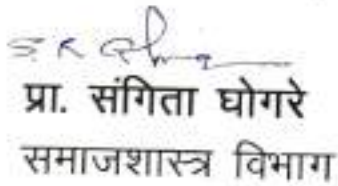 प्रा. संगिता घोगरे
समाजशास्त्र विभाग